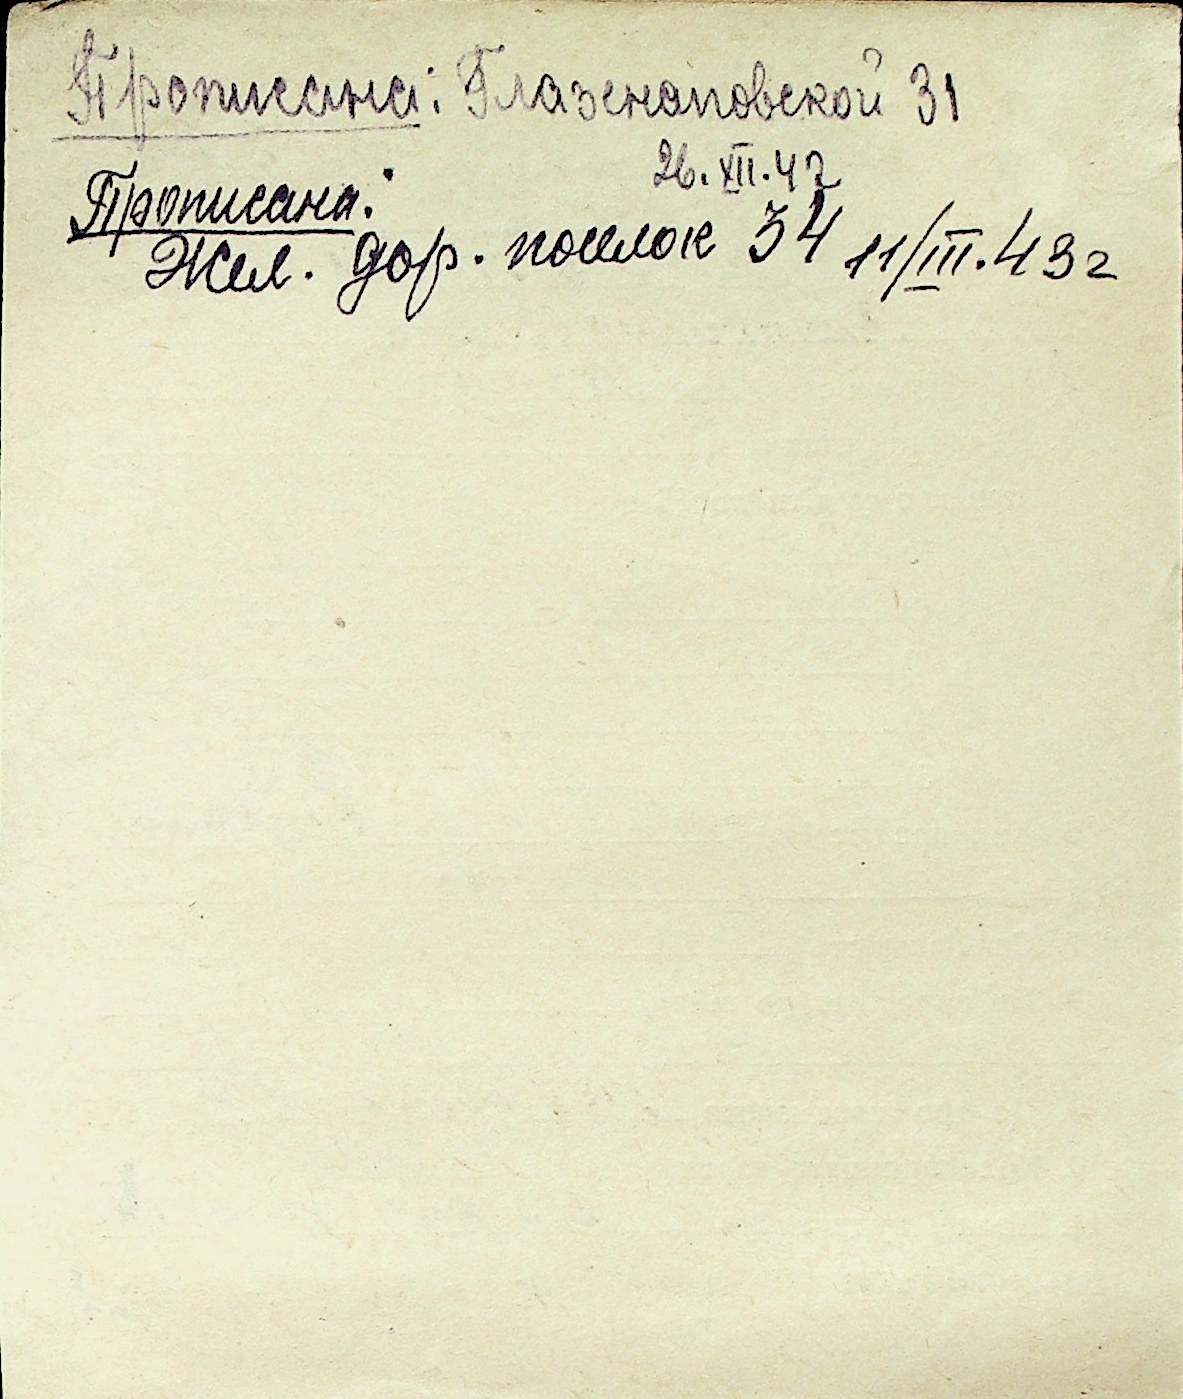 Прописана: Глазенаповской 31
26.XII.42
Прописана:
Жел. дор. поселок 34 11/III.43г